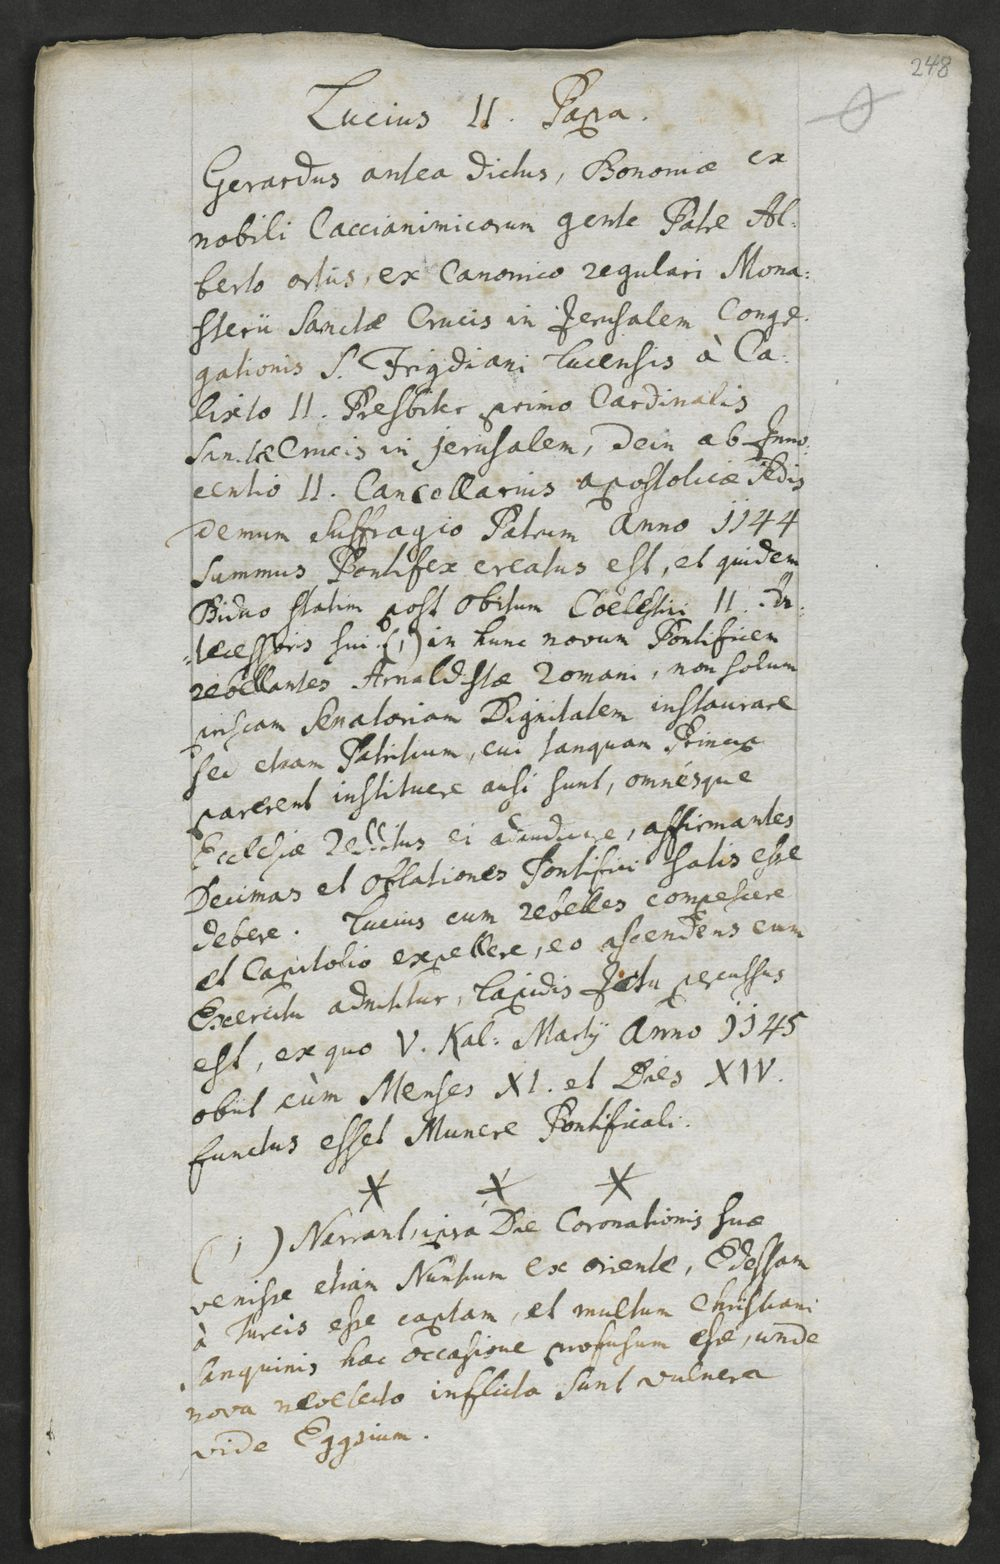 248
Lucius II. Papa.
Gerardus antea dictus, Bononiæ ex
nobili Caccianimicorum gente Patre Al:
berto ortus, ex Canonico regulari Mona:
sterii Sanctæ Crucis in Jerusalem Congre:
gationis S. Frigdiani Lucensis à Ca:
lixto II. Presbiter primo Cardinalis
Sanctæ Crucis in jerusalem, dein ab Inno:
centio II. Cancellarius apostolicæ Sedis
demum suffragio Patrum Anno 1144
Summus Pontifex creatus est, et quidem
Biduo statim post obitum Coëlestini II. An:
=tecessoris sui. (1) in hunc novum Pontificem
rebellantes Arnaldistæ Romani, non solum
priscam Senatoriam Dignitatem instaurare
sed etiam Patritium, cui tanquam Principi
parerent instituere ausi sunt, omnésque
Ecclesiæ Redditus ei adducere, affirmantes
Decimas et oblationes Pontifici satis esse
debere. Lucius cum rebelles compescere
et Capitolio expellere, eo ascendens cum
Exercitu adnititur, lapidis Jctu percussus
est, ex quo V. Kal: Martÿ Anno 1145
obiit cùm Menses XI. et Dies XIV.
functus esset Munere Pontificali.
(1) Narrant, ipsa Die Coronationis suæ
venisse etiam Nuntium ex oriente, Edessam
à Turcis esse captam, et multum Christiani
sanguinis hac occasione profusum esse, unde
nova inflicta sunt vulnera
vide Eggsium.